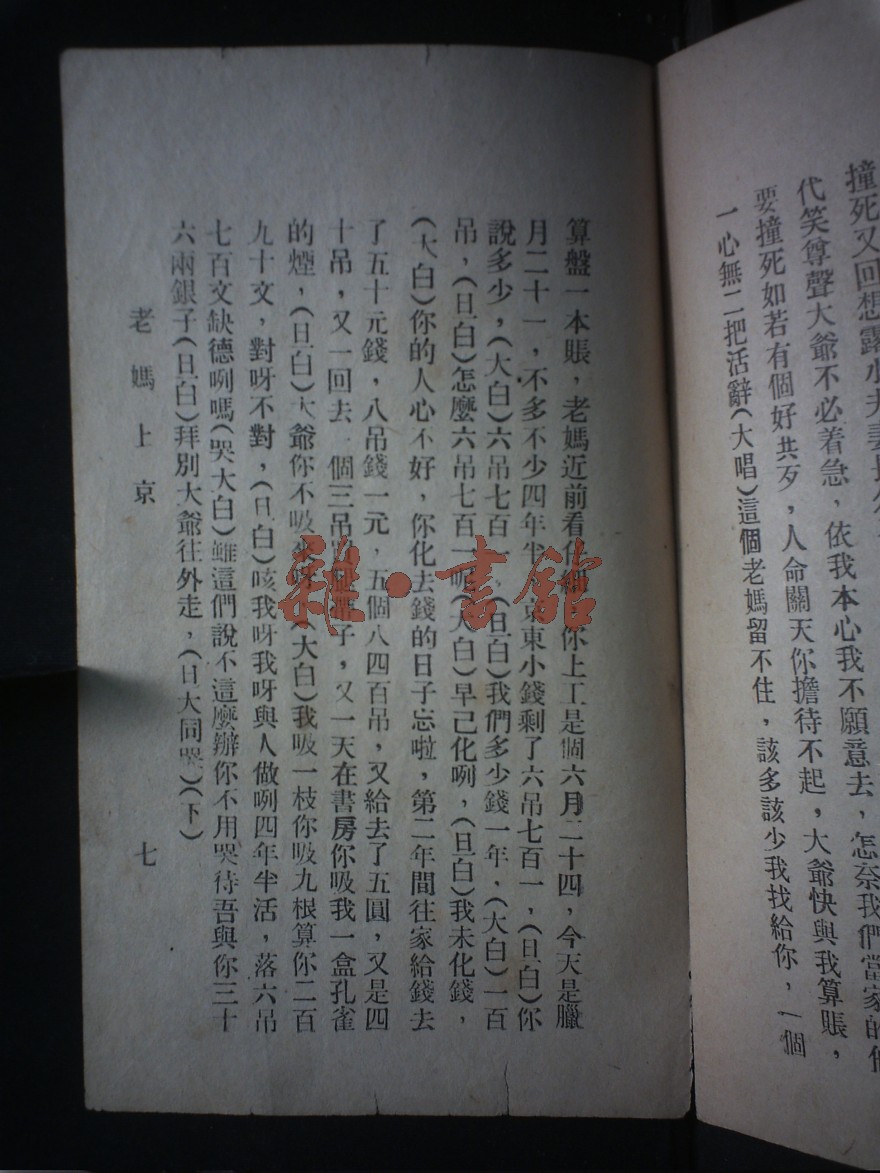 撞死又回想露小夫妻
代笑尊聲大爺不必着急，依我本心我不願意去，怎奈我們當家的他
要撞死如若有個好共歹，人命關天你擔待不起，大爺快與我算賬，
一心無二把活辭（大唱）這個老媽留不住，該多該少我找給你，一個
算盤一本賬，老媽近前看仔細，你上工是個六月二十四，今天是臘
月二十一，不多不少四年半，京東小錢剩了六吊七百一，（旦白）你
說多少，（大白）六吊七百一，（旦白）我們多少錢一年，（大白）一百
吊，（旦白）怎麼六吊七百一呢（大白）早已化咧，（旦白）我未化錢，
（大白）你的人心不好，你化去錢的日子忘啦，第二年間往家給錢去
了五十元錢，八吊錢一元，五個八四百吊，又給去了五圓，又是四
十吊，又一回去一個三吊 子，又一天在書房你吸我一盒孔雀
的煙，（旦白）大爺你不吸 （大白）我吸一枝你吸九根算你二百
九十文，對呀不對，（旦白）咳我呀我呀與人做咧四年半活，落六吊
七百文缺德咧嗎（哭大白）雖這們說不這麼辦你不用哭待吾與你三十
六兩銀子（旦白）拜別大爺往外走，（旦大同哭）（下）
老媽上京 七
雜·書舘